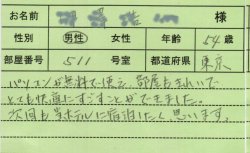 お名前 様
性別 男性 女性 年齢 54歳
部屋番号 511 号室 都道府県 東京
パソコンが無料で使え、部屋もきれいで
とても快適にすごすことができました。
次回も当ホテルに宿泊したく思います。